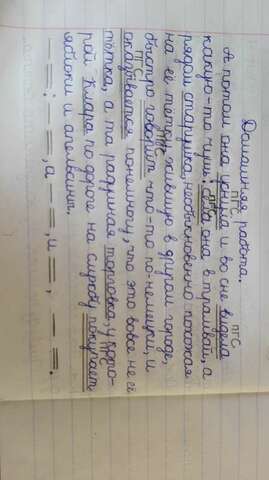 Домашняя работа.
А потом она уснула и во сне видела
какую-то чушь: села она в трамвай, а
рядом старушка, необыкновенно похожая
на её тетку, жившую в другом городе,
быстро говорит что-то по-немецки, и
оказывается понемногу, что это вовсе не её
тётка, а та радушная торговка, у кото-
рой Клара по дороге на службу покупает
яблоки и апельсины.
ПГС
ПГС
ПГС
ПГС
ПГС